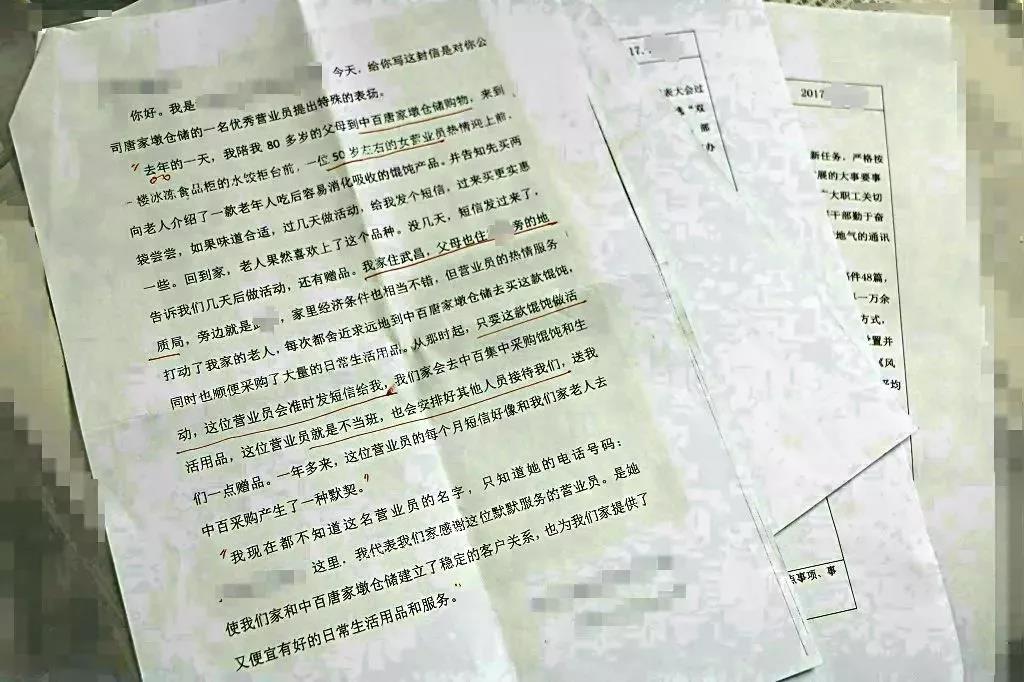 今天，给你写这封信是对你公
你好。我是
司唐家墩仓储的一名优秀营业员提出特殊的表扬。
去年的一天，我陪我 80 多岁的父母到中百唐家墩仓储购物，来到
一楼冰冻食品柜的水饺柜台前，一位 50 岁左右的女营业员热情迎上前，
向老人介绍了一款老年人吃后容易消化吸收的馄饨产品。并告知先买两
袋尝尝，如果味道合适，过几天做活动，给我发个短信，过来买更实惠
一些。回到家，老人果然喜欢上了这个品种。没几天，短信发过来了，
告诉我们几天后做活动，还有赠品。我家住武昌，父母也住 旁的地
质局，旁边就是 ，家里经济条件也相当不错，但营业员的热情服务
打动了我家的老人，每次都舍近求远地到中百唐家墩仓储去买这款馄饨，
同时也顺便采购了大量的日常生活用品。从那时起，只要这款馄饨做活
动，这位营业员会准时发短信给我，我们家会去中百集中采购馄饨和生
活用品，这位营业员就是不当班，也会安排好其他人员接待我们，送我
们一点赠品。一年多来，这位营业员的每个月短信好像和我们家老人去
中百采购产生了一种默契。
我现在都不知道这名营业员的名字，只知道她的电话号码：
这里，我代表我们家感谢这位默默服务的营业员。是她
使我们家和中百唐家墩仓储建立了稳定的客户关系，也为我们家提供了
又便宜有好的日常生活用品和服务。
17.
表大会过
"双
部
办
2017
新任务，严格按
展的大事要事
广大职工关切
干部勤于奋
地气的通讯
件48篇，
一万余
方式，
置并
《风
平均
点事项、事